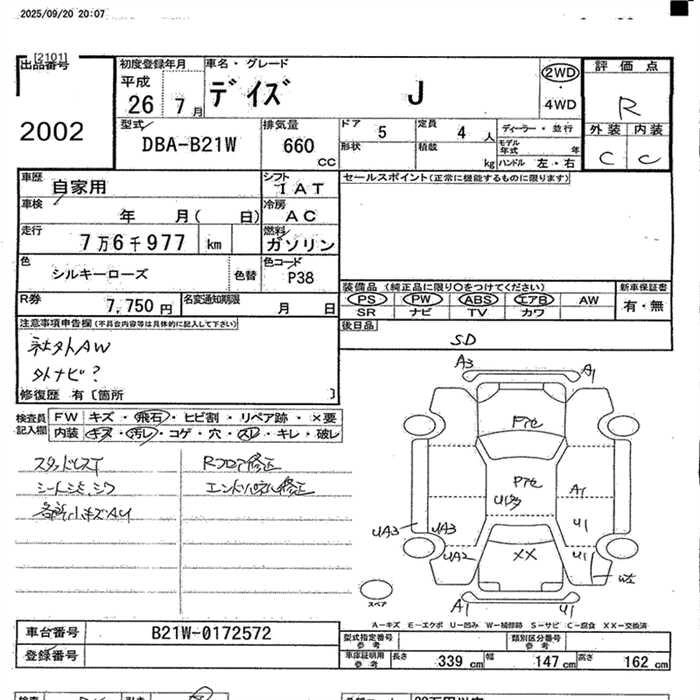 2025/09/20 20:07
[2101]
出品番号
2002
初度登録年月
平成
26 7 月
車名・グレード
デイズ J
2WD
・
4WD
評価点
R
外装 内装
C C
型式
DBA-B21W
排気量
660
CC
ドア 5
定員 4 人
形状
積載 kg
ディーラー・並行
モデル年式 年
ハンドル 左・右
車歴
自家用
シフト
IAT
車検
年 月( 日)
冷房
AC
走行
7万6千977 km
燃料
ガソリン
色
シルキーローズ
色替
色コード
P38
R券
7,750 円
名変通知期限
月 日
セールスポイント(正常に機能するものに限ります)
装備品 (純正品に限り○をつけてください)
PS PW ABS エアB AW
SR ナビ TV カワ
新車保証書
有・無
後日品
SD
注意事項申告欄(不具合内容等は具体的に記入して下さい)
社外AW
外ナビ?
修復歴 有〔箇所 〕
検査員
記入欄
FW キズ・飛石・ヒビ割・リペア跡・×要
内装 キズ・汚レ・コゲ・穴・スレ・キレ・破レ
スタッドレスT
Rフロア修正
シートシミ、シワ
エンドパネル修正
各所小キズAU
A3
A1
Pte
Pte
U1多
A1
U1
UA3
UA3
UA2
XX
U1
W2
スペア
A1
U1
A－キズ E－エクボ U－凹み W－補修跡 S－サビ C－腐食 XX－交換済
車台番号
B21W-0172572
登録番号
型式指定番号
参考
類別区分番号
参考
車庫証明用
参考
長さ 339 cm 幅 147 cm 高さ 162 cm